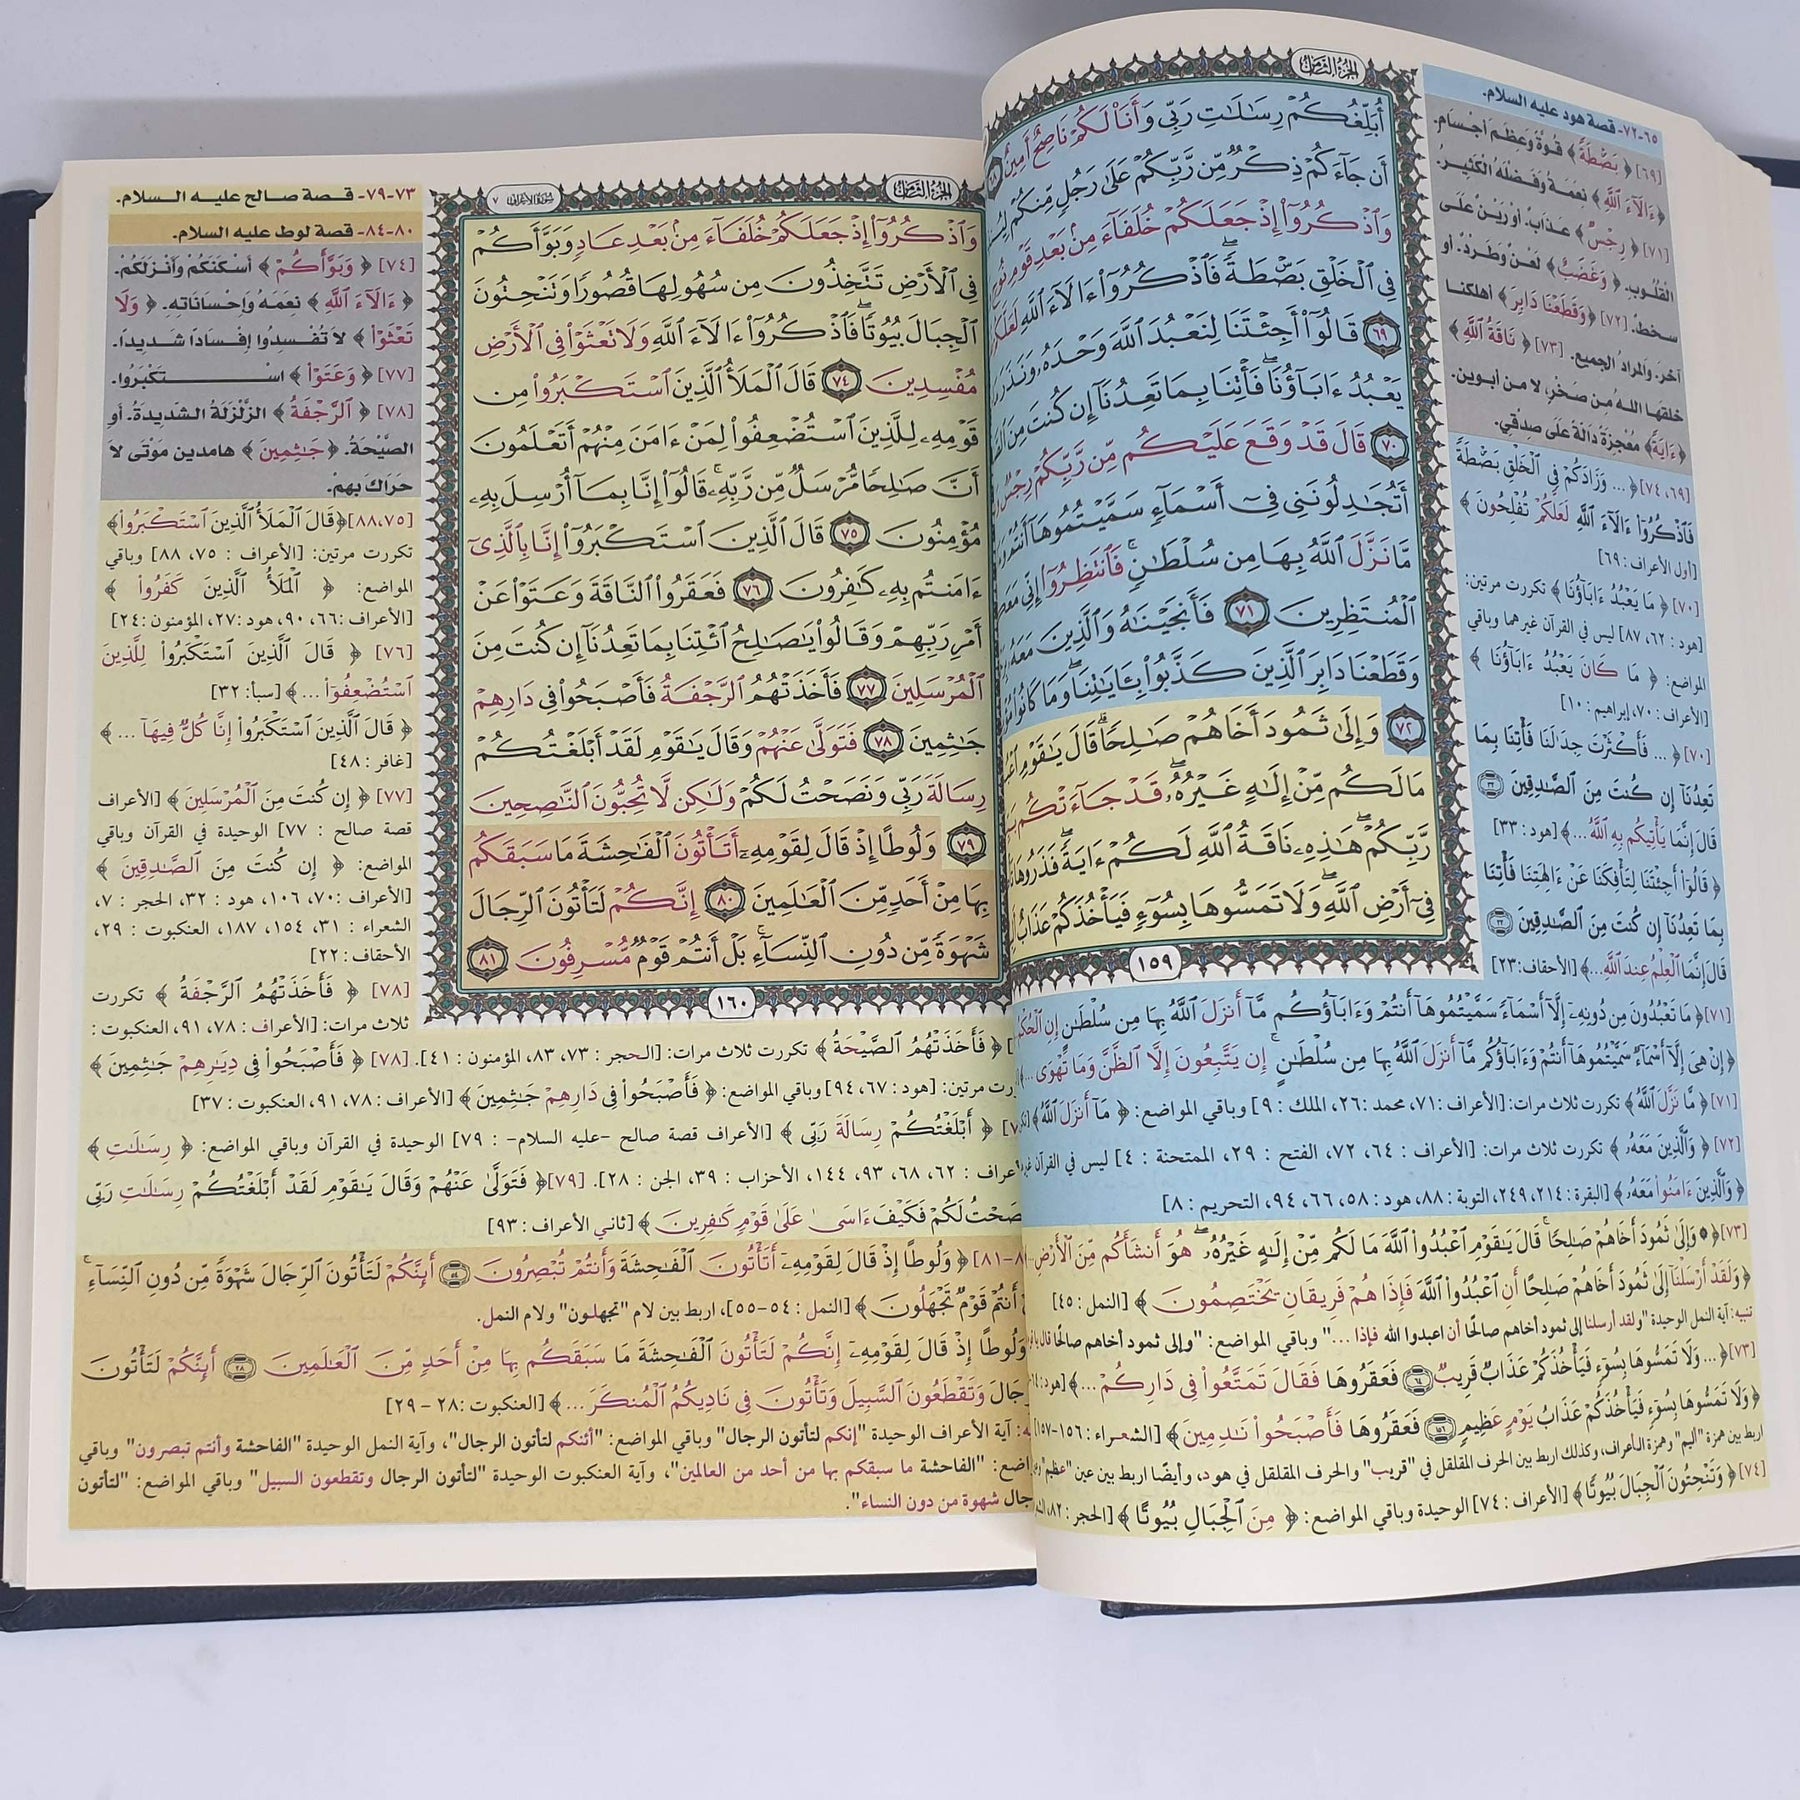 الجزء الثامن
أُبَلِّغُكُمْ رِسَٰلَٰتِ رَبِّى وَأَنَا۠ لَكُمْ نَاصِحٌ أَمِينٌ
أَن جَآءَكُمْ ذِكْرٌ مِّن رَّبِّكُمْ عَلَىٰ رَجُلٍ مِّنكُمْ
وَٱذْكُرُوٓا۟ إِذْ جَعَلَكُمْ خُلَفَآءَ مِنۢ بَعْدِ قَوْمِ نُوحٍ
فِى ٱلْخَلْقِ بَصْۜطَةً ۖ فَٱذْكُرُوٓا۟ ءَالَآءَ ٱللَّهِ لَعَلَّكُمْ
٦٩ قَالُوٓا۟ أَجِئْتَنَا لِنَعْبُدَ ٱللَّهَ وَحْدَهُۥ وَنَذَرَ
يَعْبُدُ ءَابَآؤُنَا ۖ فَأْتِنَا بِمَا تَعِدُنَآ إِن كُنتَ مِنَ
٧٠ قَالَ قَدْ وَقَعَ عَلَيْكُم مِّن رَّبِّكُمْ رِجْسٌ
أَتُجَٰدِلُونَنِى فِىٓ أَسْمَآءٍ سَمَّيْتُمُوهَآ أَنتُمْ
مَّا نَزَّلَ ٱللَّهُ بِهَا مِن سُلْطَٰنٍ ۚ فَٱنتَظِرُوٓا۟ إِنِّى مَعَكُم
ٱلْمُنتَظِرِينَ ٧١ فَأَنجَيْنَٰهُ وَٱلَّذِينَ مَعَهُۥ
وَقَطَعْنَا دَابِرَ ٱلَّذِينَ كَذَّبُوا۟ بِـَٔايَٰتِنَا ۖ وَمَا كَانُوا۟
٧٢ وَإِلَىٰ ثَمُودَ أَخَاهُمْ صَٰلِحًا ۗ قَالَ يَٰقَوْمِ
مَا لَكُم مِّنْ إِلَٰهٍ غَيْرُهُۥ ۖ قَدْ جَآءَتْكُم
رَّبِّكُمْ ۖ هَٰذِهِۦ نَاقَةُ ٱللَّهِ لَكُمْ ءَايَةً ۖ فَذَرُوهَا
فِىٓ أَرْضِ ٱللَّهِ ۖ وَلَا تَمَسُّوهَا بِسُوٓءٍ فَيَأْخُذَكُمْ عَذَابٌ
١٥٩
٦٥-٧٢- قصة هود عليه السلام.
[٦٩] ﴿بَصْۜطَةً﴾ قُوَّةً وَعِظَمَ أجْسَامٍ.
﴿ءَالَآءَ ٱللَّهِ﴾ نِعَمَهُ وَفَضْلَهُ الْكَثِيرَ.
[٧١] ﴿رِجْسٌ﴾ عَذَابٌ. أوْ رَيْنٌ عَلَى
الْقُلُوبِ. ﴿وَغَضَبٌ﴾ لَعْنٌ وَطَرْدٌ. أو
سخطٌ. [٧٢] ﴿وَقَطَعْنَا دَابِرَ﴾ أهلكنا
آخر. والمرادُ الجميع. [٧٣] ﴿نَاقَةُ ٱللَّهِ﴾
خلقها اللهُ من صَخْرٍ، لا من أبوين.
﴿ءَايَةً﴾ مُعْجِزَةً دَالَّةً عَلَى صِدْقِي.
[٦٩، ٧٤] ﴿... وَزَادَكُمْ فِى ٱلْخَلْقِ بَصْۜطَةً
فَٱذْكُرُوٓا۟ ءَالَآءَ ٱللَّهِ لَعَلَّكُمْ تُفْلِحُونَ﴾
[أول الأعراف: ٦٩]
[٧٠] ﴿مَا يَعْبُدُ ءَابَآؤُنَا﴾ تكررت مرتين:
[هود: ٦٢، ٨٧] ليس في القرآن غيرهما وباقي
المواضع: ﴿مَا كَانَ يَعْبُدُ ءَابَآؤُنَا﴾
[الأعراف: ٧٠، إبراهيم: ١٠]
[٧٠] ﴿... فَأَكْثَرْتَ جِدَٰلَنَا فَأْتِنَا بِمَا
تَعِدُنَآ إِن كُنتَ مِنَ ٱلصَّٰدِقِينَ ٣٢
قَالَ إِنَّمَا يَأْتِيكُم بِهِ ٱللَّهُ...﴾ [هود: ٣٣]
﴿قَالُوٓا۟ أَجِئْتَنَا لِتَأْفِكَنَا عَنْ ءَالِهَتِنَا فَأْتِنَا
بِمَا تَعِدُنَآ إِن كُنتَ مِنَ ٱلصَّٰدِقِينَ ٢٢
قَالَ إِنَّمَا ٱلْعِلْمُ عِندَ ٱللَّهِ...﴾ [الأحقاف: ٢٣]
[٧١] ﴿مَا تَعْبُدُونَ مِن دُونِهِۦٓ إِلَّآ أَسْمَآءً سَمَّيْتُمُوهَآ أَنتُمْ وَءَابَآؤُكُم مَّآ أَنزَلَ ٱللَّهُ بِهَا مِن سُلْطَٰنٍ إِنِ ٱلْحُكْمُ
﴿إِنْ هِىَ إِلَّآ أَسْمَآءٌ سَمَّيْتُمُوهَآ أَنتُمْ وَءَابَآؤُكُم مَّآ أَنزَلَ ٱللَّهُ بِهَا مِن سُلْطَٰنٍ ۚ إِن يَتَّبِعُونَ إِلَّا ٱلظَّنَّ وَمَا تَهْوَى ...﴾
[٧١] ﴿مَّا نَزَّلَ ٱللَّهُ﴾ تكررت ثلاث مرات: [الأعراف: ٧١، محمد: ٢٦، الملك: ٩] وباقي المواضع: ﴿مَآ أَنزَلَ ٱللَّهُ﴾
[٧٢] ﴿وَٱلَّذِينَ مَعَهُۥ﴾ تكررت ثلاث مرات: [الأعراف: ٦٤، ٧٢، الفتح: ٢٩، الممتحنة: ٤] ليس في القرآن
﴿وَٱلَّذِينَ ءَامَنُوا۟ مَعَهُۥ﴾ [البقرة: ٢١٤، ٢٤٩، التوبة: ٨٨، هود: ٥٨، ٦٦، ٩٤، التحريم: ٨]
[٧٣] ﴿۞ وَإِلَىٰ ثَمُودَ أَخَاهُمْ صَٰلِحًا ۚ قَالَ يَٰقَوْمِ ٱعْبُدُوا۟ ٱللَّهَ مَا لَكُم مِّنْ إِلَٰهٍ غَيْرُهُۥ ۖ هُوَ أَنشَأَكُم مِّنَ ٱلْأَرْضِ
﴿وَلَقَدْ أَرْسَلْنَآ إِلَىٰ ثَمُودَ أَخَاهُمْ صَٰلِحًا أَنِ ٱعْبُدُوا۟ ٱللَّهَ فَإِذَا هُمْ فَرِيقَانِ يَخْتَصِمُونَ﴾ [النمل: ٤٥]
تنبيه: آية النمل الوحيدة "ولقد أرسلنا إلى ثمود أخاهم صالحًا أن اعبدوا الله فإذا ..." وباقي المواضع: "وإلى ثمود أخاهم صالحًا قال
[٧٣] ﴿... وَلَا تَمَسُّوهَا بِسُوٓءٍ فَيَأْخُذَكُمْ عَذَابٌ قَرِيبٌ ٦٤ فَعَقَرُوهَا فَقَالَ تَمَتَّعُوا۟ فِى دَارِكُمْ ...﴾ [هود:
﴿وَلَا تَمَسُّوهَا بِسُوٓءٍ فَيَأْخُذَكُمْ عَذَابُ يَوْمٍ عَظِيمٍ ١٥٦ فَعَقَرُوهَا فَأَصْبَحُوا۟ نَٰدِمِينَ﴾ [الشعراء: ١٥٦-١٥٧]
اربط بين همزة "أليم" وهمزة الأعراف، وكذلك اربط بين الحرف المقلقل في "قريب" والحرف المقلقل في هود، وأيضًا اربط بين عين "عظيم"
[٧٤] ﴿وَتَنْحِتُونَ ٱلْجِبَالَ بُيُوتًا﴾ [الأعراف: ٧٤] الوحيدة وباقي المواضع: ﴿مِنَ ٱلْجِبَالِ بُيُوتًا﴾ [الحجر: ٨٢،
الجزء الثامن
سورة الأعراف ٧
وَٱذْكُرُوٓا۟ إِذْ جَعَلَكُمْ خُلَفَآءَ مِنۢ بَعْدِ عَادٍ وَبَوَّأَكُمْ
فِى ٱلْأَرْضِ تَتَّخِذُونَ مِن سُهُولِهَا قُصُورًا وَتَنْحِتُونَ
ٱلْجِبَالَ بُيُوتًا ۖ فَٱذْكُرُوٓا۟ ءَالَآءَ ٱللَّهِ وَلَا تَعْثَوْا۟ فِى ٱلْأَرْضِ
مُفْسِدِينَ ٧٤ قَالَ ٱلْمَلَأُ ٱلَّذِينَ ٱسْتَكْبَرُوا۟ مِن
قَوْمِهِۦ لِلَّذِينَ ٱسْتُضْعِفُوا۟ لِمَنْ ءَامَنَ مِنْهُمْ أَتَعْلَمُونَ
أَنَّ صَٰلِحًا مُّرْسَلٌ مِّن رَّبِّهِۦ ۚ قَالُوٓا۟ إِنَّا بِمَآ أُرْسِلَ بِهِۦ
مُؤْمِنُونَ ٧٥ قَالَ ٱلَّذِينَ ٱسْتَكْبَرُوٓا۟ إِنَّا بِٱلَّذِىٓ
ءَامَنتُم بِهِۦ كَٰفِرُونَ ٧٦ فَعَقَرُوا۟ ٱلنَّاقَةَ وَعَتَوْا۟ عَنْ
أَمْرِ رَبِّهِمْ وَقَالُوا۟ يَٰصَٰلِحُ ٱئْتِنَا بِمَا تَعِدُنَآ إِن كُنتَ مِنَ
ٱلْمُرْسَلِينَ ٧٧ فَأَخَذَتْهُمُ ٱلرَّجْفَةُ فَأَصْبَحُوا۟ فِى دَارِهِمْ
جَٰثِمِينَ ٧٨ فَتَوَلَّىٰ عَنْهُمْ وَقَالَ يَٰقَوْمِ لَقَدْ أَبْلَغْتُكُمْ
رِسَالَةَ رَبِّى وَنَصَحْتُ لَكُمْ وَلَٰكِن لَّا تُحِبُّونَ ٱلنَّٰصِحِينَ
٧٩ وَلُوطًا إِذْ قَالَ لِقَوْمِهِۦٓ أَتَأْتُونَ ٱلْفَٰحِشَةَ مَا سَبَقَكُم
بِهَا مِنْ أَحَدٍ مِّنَ ٱلْعَٰلَمِينَ ٨٠ إِنَّكُمْ لَتَأْتُونَ ٱلرِّجَالَ
شَهْوَةً مِّن دُونِ ٱلنِّسَآءِ ۚ بَلْ أَنتُمْ قَوْمٌ مُّسْرِفُونَ ٨١
١٦٠
٧٣-٧٩- قصة صالح عليه السلام.
٨٠-٨٤- قصة لوط عليه السلام.
[٧٤] ﴿وَبَوَّأَكُمْ﴾ أسْكَنَكُمْ وَأنْزَلَكُمْ.
﴿ءَالَآءَ ٱللَّهِ﴾ نِعَمَهُ وَإحْسَانَاتِهِ. ﴿وَلَا
تَعْثَوْا۟﴾ لا تُفْسِدُوا إفْسَاداً شَدِيداً.
[٧٧] ﴿وَعَتَوْا۟﴾ اسْتَكْبَرُوا.
[٧٨] ﴿ٱلرَّجْفَةُ﴾ الزَّلْزَلَةُ الشَّدِيدَةُ. أو
الصَّيْحَةُ. ﴿جَٰثِمِينَ﴾ هامدين مَوْتَى لا
حَرَاكَ بِهِمْ.
[٧٥، ٨٨] ﴿قَالَ ٱلْمَلَأُ ٱلَّذِينَ ٱسْتَكْبَرُوا۟﴾
تكررت مرتين: [الأعراف: ٧٥، ٨٨] وباقي
المواضع: ﴿ٱلْمَلَأُ ٱلَّذِينَ كَفَرُوا۟﴾
[الأعراف: ٦٦، ٩٠، هود: ٢٧، المؤمنون: ٢٤]
[٧٦] ﴿قَالَ ٱلَّذِينَ ٱسْتَكْبَرُوا۟ لِلَّذِينَ
ٱسْتُضْعِفُوٓا۟ ...﴾ [سبأ: ٣٢]
﴿قَالَ ٱلَّذِينَ ٱسْتَكْبَرُوٓا۟ إِنَّا كُلٌّ فِيهَآ ...﴾
[غافر: ٤٨]
[٧٧] ﴿إِن كُنتَ مِنَ ٱلْمُرْسَلِينَ﴾ [الأعراف
قصة صالح: ٧٧] الوحيدة في القرآن وباقي
المواضع: ﴿إِن كُنتَ مِنَ ٱلصَّٰدِقِينَ﴾
[الأعراف: ٧٠، ١٠٦، هود: ٣٢، الحجر: ٧،
الشعراء: ٣١، ١٥٤، ١٨٧، العنكبوت: ٢٩،
الأحقاف: ٢٢]
[٧٨] ﴿فَأَخَذَتْهُمُ ٱلرَّجْفَةُ﴾ تكررت
ثلاث مرات: [الأعراف: ٧٨، ٩١، العنكبوت:
﴿فَأَخَذَتْهُمُ ٱلصَّيْحَةُ﴾ تكررت ثلاث مرات: [الحجر: ٧٣، ٨٣، المؤمنون: ٤١]. [٧٨] ﴿فَأَصْبَحُوا۟ فِى دِيَٰرِهِمْ جَٰثِمِينَ﴾
مرتين: [هود: ٦٧، ٩٤] وباقي المواضع: ﴿فَأَصْبَحُوا۟ فِى دَارِهِمْ جَٰثِمِينَ﴾ [الأعراف: ٧٨، ٩١، العنكبوت: ٣٧]
﴿أَبْلَغْتُكُمْ رِسَالَةَ رَبِّى﴾ [الأعراف قصة صالح -عليه السلام-: ٧٩] الوحيدة في القرآن وباقي المواضع: ﴿رِسَٰلَٰتِ﴾
٦٢، ٦٨، ٩٣، ١٤٤، الأحزاب: ٣٩، الجن: ٢٨]. [٧٩] ﴿فَتَوَلَّىٰ عَنْهُمْ وَقَالَ يَٰقَوْمِ لَقَدْ أَبْلَغْتُكُمْ رِسَٰلَٰتِ رَبِّى
لَكُمْ فَكَيْفَ ءَاسَىٰ عَلَىٰ قَوْمٍ كَٰفِرِينَ﴾ [ثاني الأعراف: ٩٣]
٨١] ﴿وَلُوطًا إِذْ قَالَ لِقَوْمِهِۦٓ أَتَأْتُونَ ٱلْفَٰحِشَةَ وَأَنتُمْ تُبْصِرُونَ ٥٤ أَئِنَّكُمْ لَتَأْتُونَ ٱلرِّجَالَ شَهْوَةً مِّن دُونِ ٱلنِّسَآءِ ۚ
أَنتُمْ قَوْمٌ تَجْهَلُونَ﴾ [النمل: ٥٤-٥٥]، اربط بين لام "تجهلون" ولام النمل.
إِذْ قَالَ لِقَوْمِهِۦٓ إِنَّكُمْ لَتَأْتُونَ ٱلْفَٰحِشَةَ مَا سَبَقَكُم بِهَا مِنْ أَحَدٍ مِّنَ ٱلْعَٰلَمِينَ ٢٨ أَئِنَّكُمْ لَتَأْتُونَ
وَتَقْطَعُونَ ٱلسَّبِيلَ وَتَأْتُونَ فِى نَادِيكُمُ ٱلْمُنكَرَ ...﴾ [العنكبوت: ٢٨-٢٩]
آية الأعراف الوحيدة "إنكم لتأتون الرجال" وباقي المواضع: "أئنكم لتأتون الرجال"، وآية النمل الوحيدة "الفاحشة وأنتم تبصرون" وباقي
"الفاحشة ما سبقكم بها من أحد من العالمين"، وآية العنكبوت الوحيدة "لتأتون الرجال وتقطعون السبيل" وباقي المواضع: "لتأتون
شهوة من دون النساء".